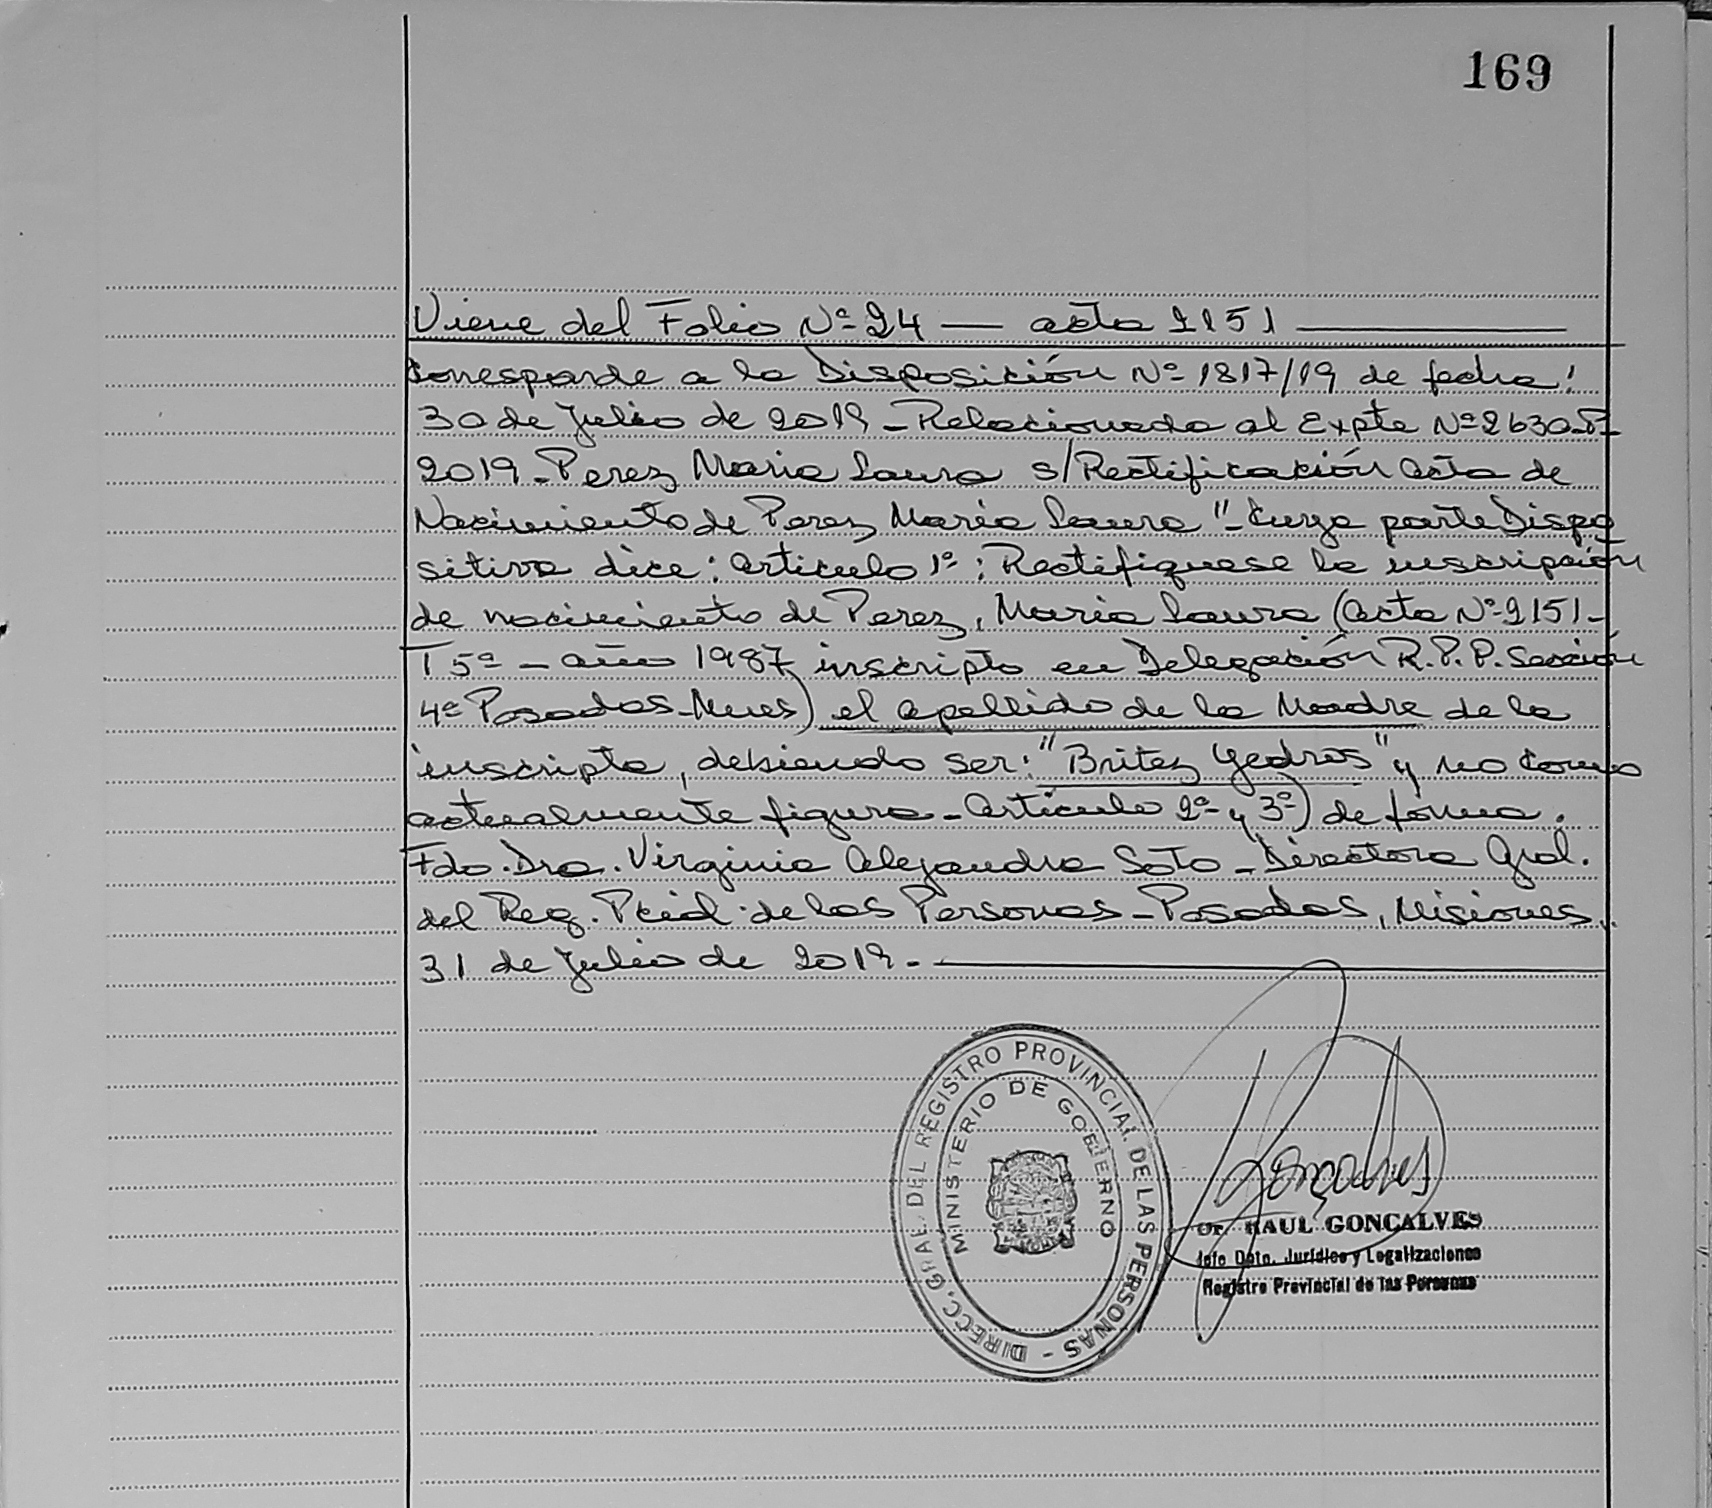 169
Viene del Folio Nº 24 — acta 2151
Corresponde a la Disposición Nº 1817/19 de fecha:
30 de Julio de 2019 - Relacionada al Expte Nº 2630-P-
2019 - Perez Maria Laura s/Rectificación acta de
Nacimiento de Perez Maria Laura" - Cuya parte Dispo
sitiva dice: Articulo 1º: Rectifiquese la inscripción
de nacimiento de Perez, Maria Laura (acta Nº 2151-
T 5º - año 1987 inscripta en Delegación R.P.P. Sección
4ª Posadas-Mnes) el apellido de la Madre de la
inscripta, debiendo ser: "Britez Yedros" y no como
actualmente figura - Articulo 2º y 3º) de forma.
Fdo. Dra. Virginia Alejandra Soto - Directora Gral.
del Reg. Pcial. de las Personas - Posadas, Misiones,
31 de Julio de 2019.-
DIRECC. GRAL. DEL REGISTRO PROVINCIAL DE LAS PERSONAS -
MINISTERIO DE GOBIERNO
Gonçalves
Dr. RAUL GONCALVES
Jefe Dpto. Jurídico y Legalizaciones
Registro Provincial de las Personas